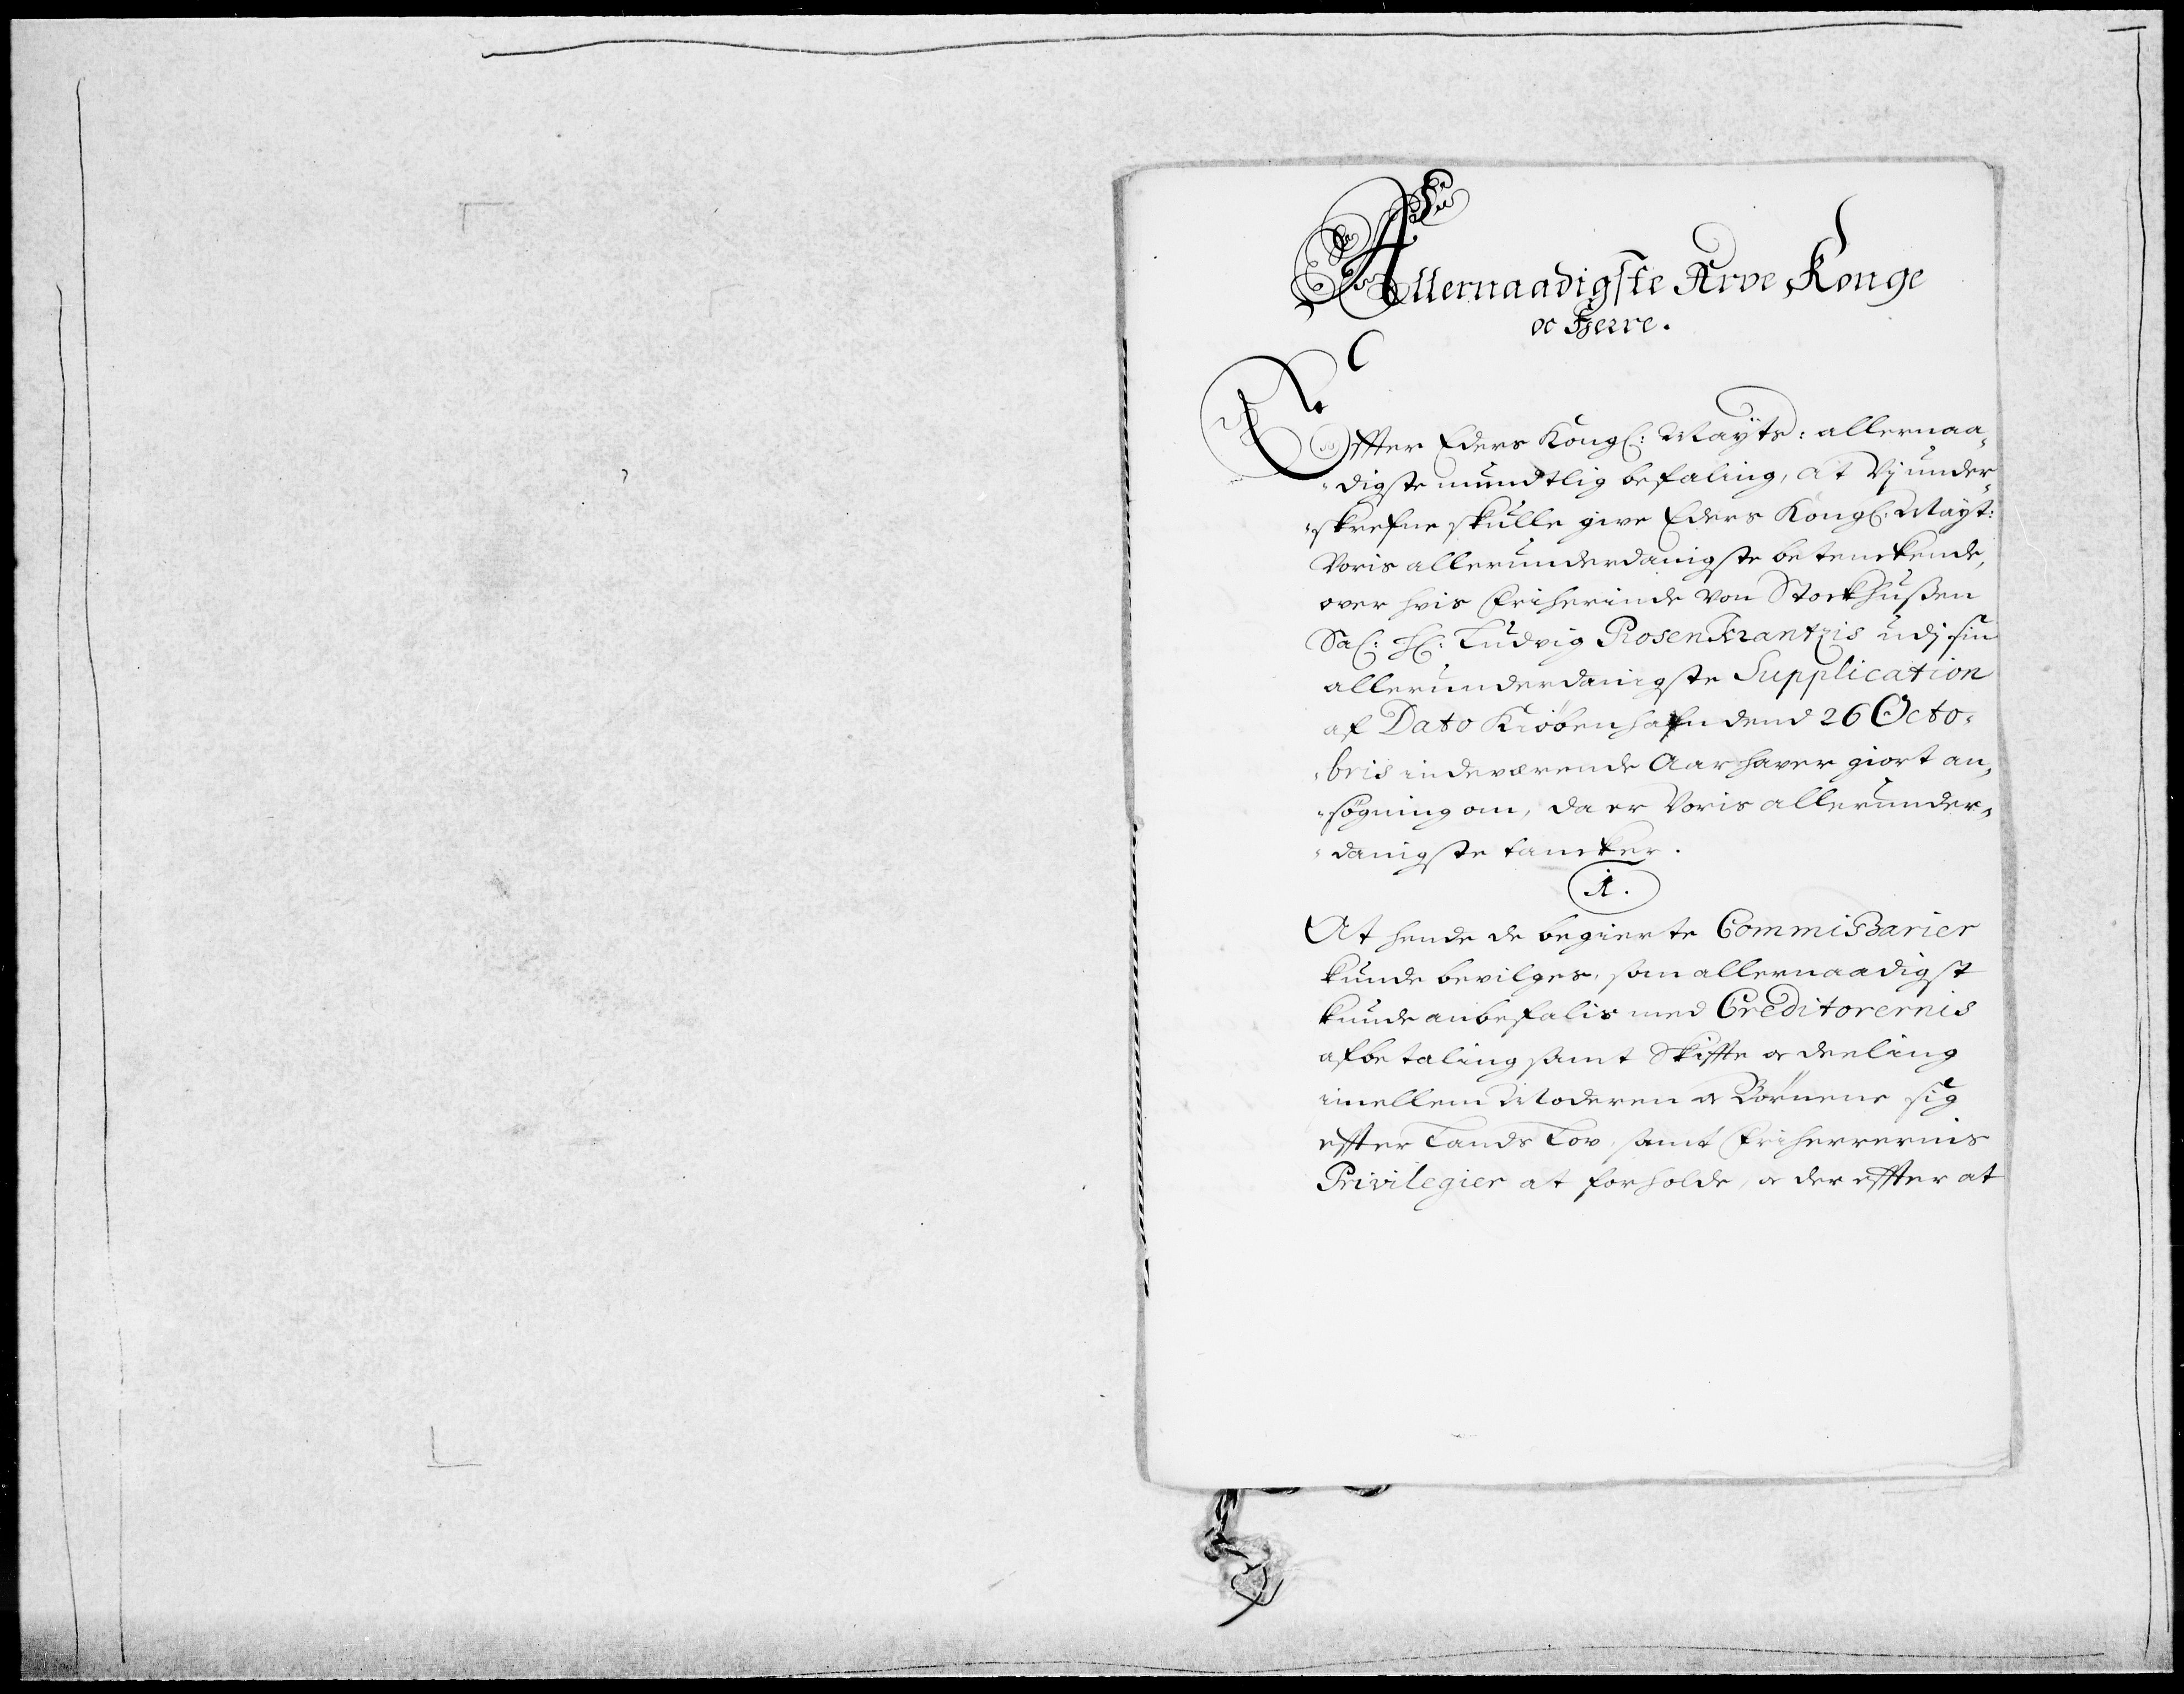 Allernaadigste Arve Konge
oc Herre.
Effter Eders Kongl: Mayts: allernaa-
digste mundtlig befaling, at Vj under-
skrefne skulle give Eders Kongl: Mayt:
Voris allerunderdanigste betenckende,
over hvis Friherinde von Stockhußen
Sal: Hl: Ludvig Rosenkrantzis udj sin
allerunderdanigste Supplication
af Dato Kiøbenhafn dend 26 Octo-
bris indeværende Aar haver giort an-
søgning om, da er Voris allerunder-
danigste tancker.
1.
At hende de begierte Commissarier
kunde bevilges, som allernaadigst
kunde anbefalis med Creditorernis
afbetaling samt Skiffte oc deeling
imellem Moderen oc Børnene sig
effter Lands Lov, samt Friherrernis
Privilegier at forholde, oc der effter at